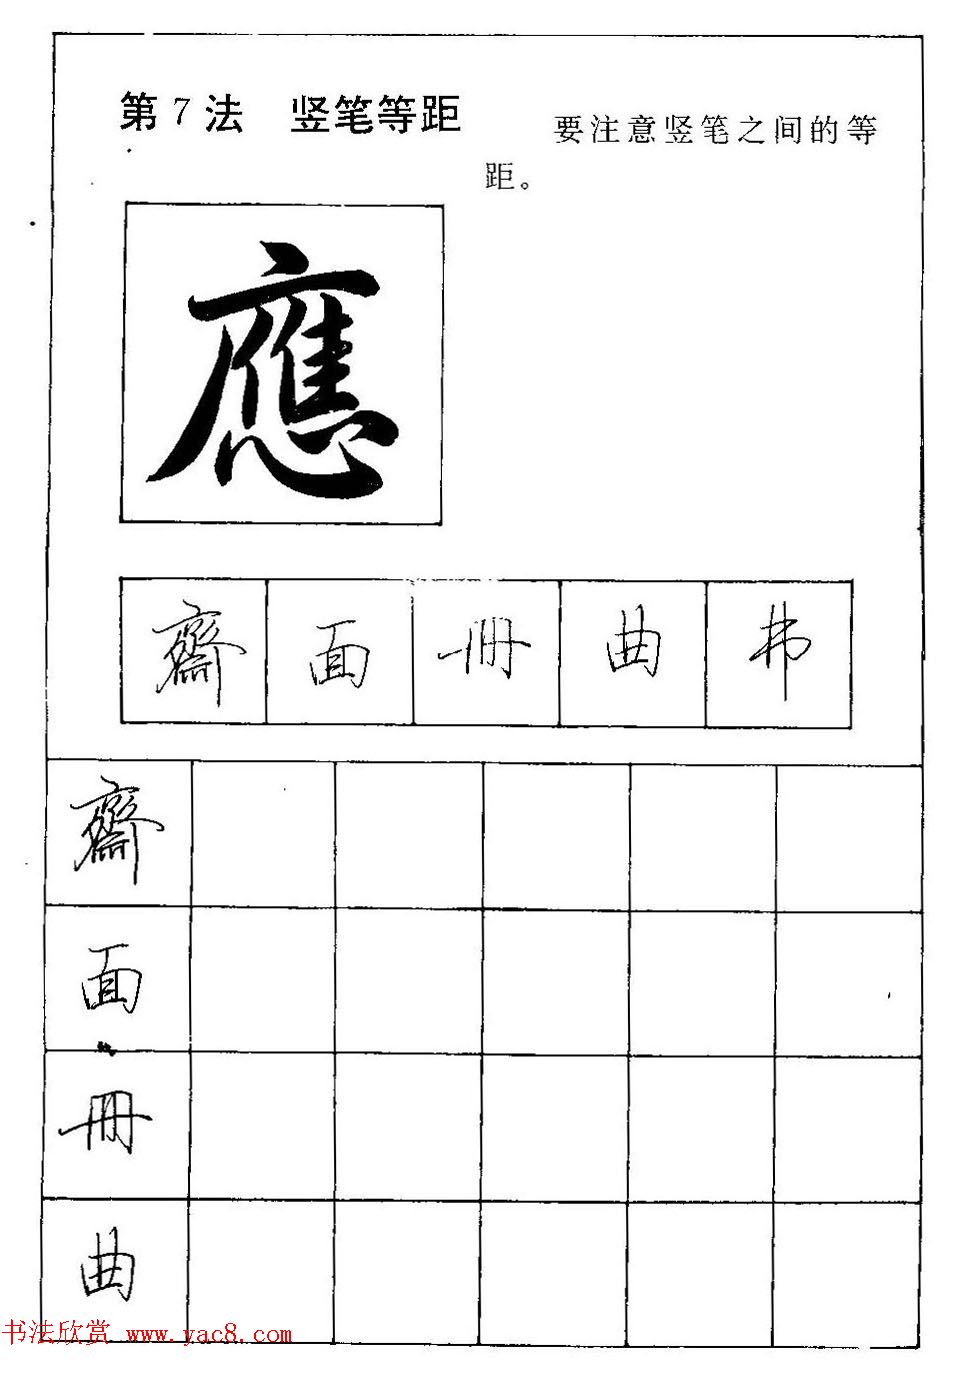 第7法 竖笔等距
要注意竖笔之间的等
距。
應
齋 面 冊 曲 弗
齋
面
冊
曲
书法欣赏 www.yac8.com